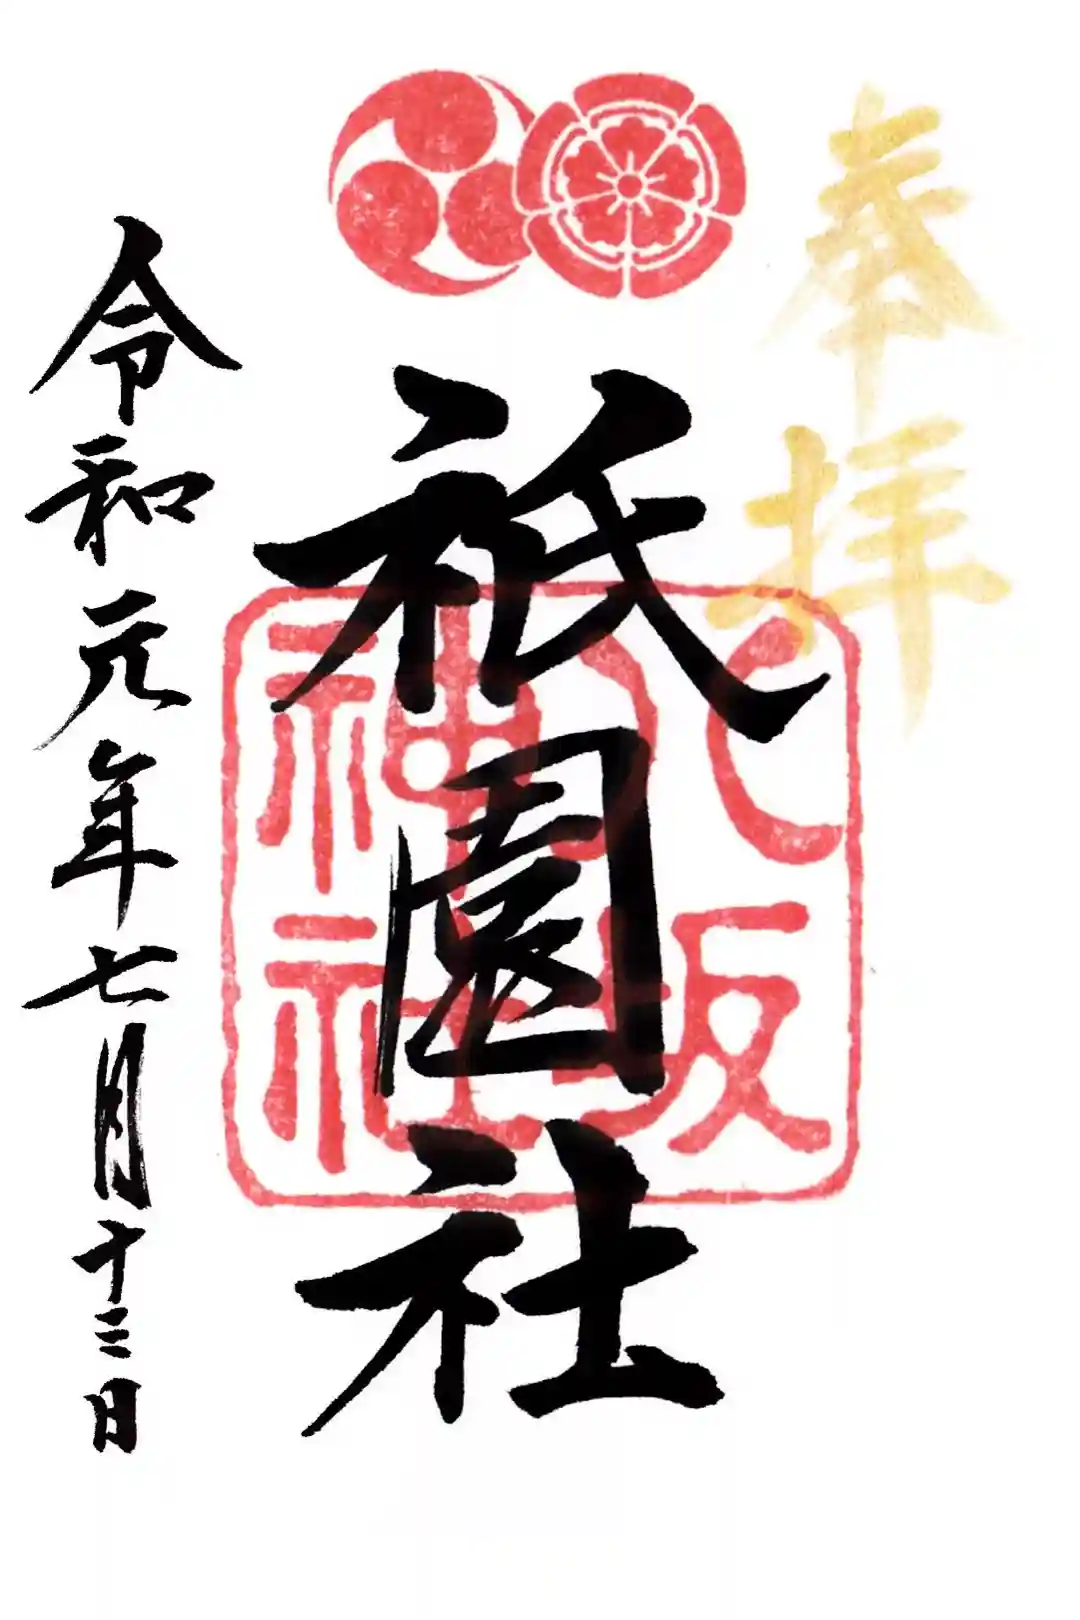 奉拝
祇園社
八坂
神社
令和元年七月十三日